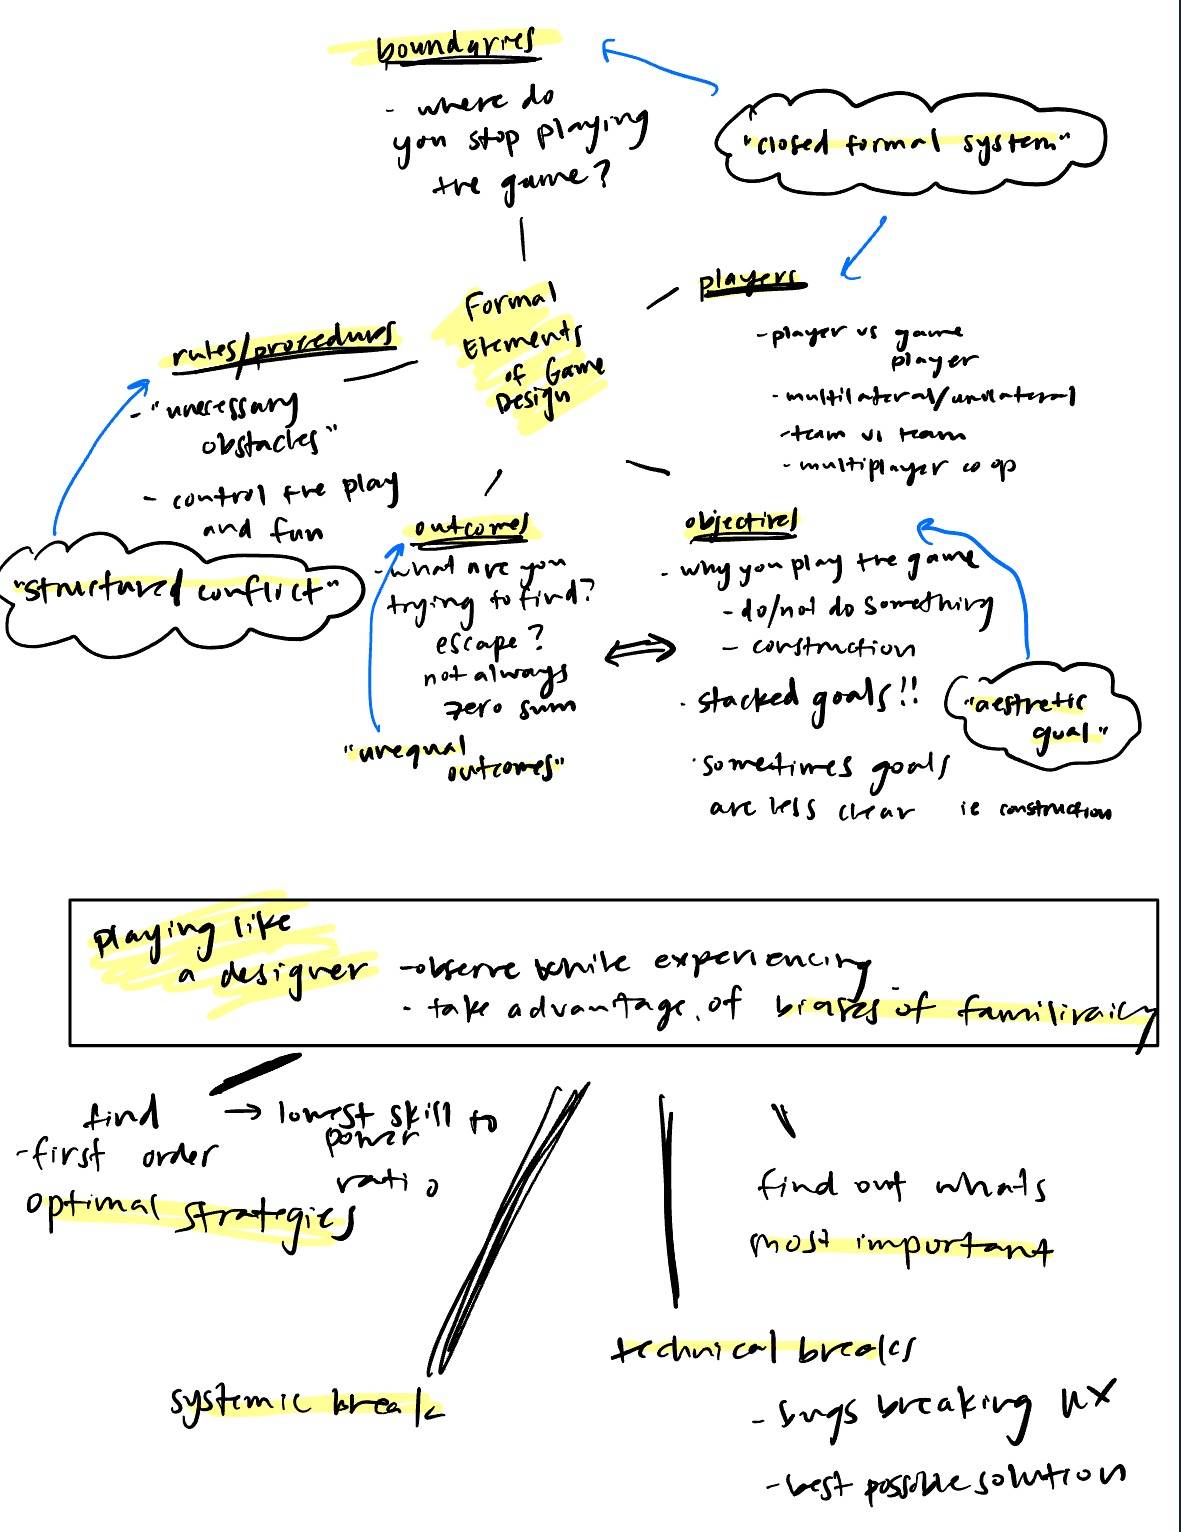 boundaries
- where do
you stop playing
the game?
"closed formal system"
Formal
Elements
of Game
Design
players
- player vs game
player
- multilateral/unilateral
- team vs team
- multiplayer co op
rules/procedures
- "unecessary
obstacles"
- control the play
and fun
"structured conflict"
outcomes
- what are you
trying to find?
escape?
not always
zero sum
"unequal
outcomes"
objectives
- why you play the game
- do/not do something
- construction
· stacked goals!!
· sometimes goals
are less clear ie construction
"aesthetic
goal"
playing like
a designer
- observe while experiencing
- take advantage of biases of
find
- first order
optimal strategies
→ lowest skill to
power
ratio
find out whats
most important
systemic break
technical breaks
- bugs breaking UX
- best possible solution